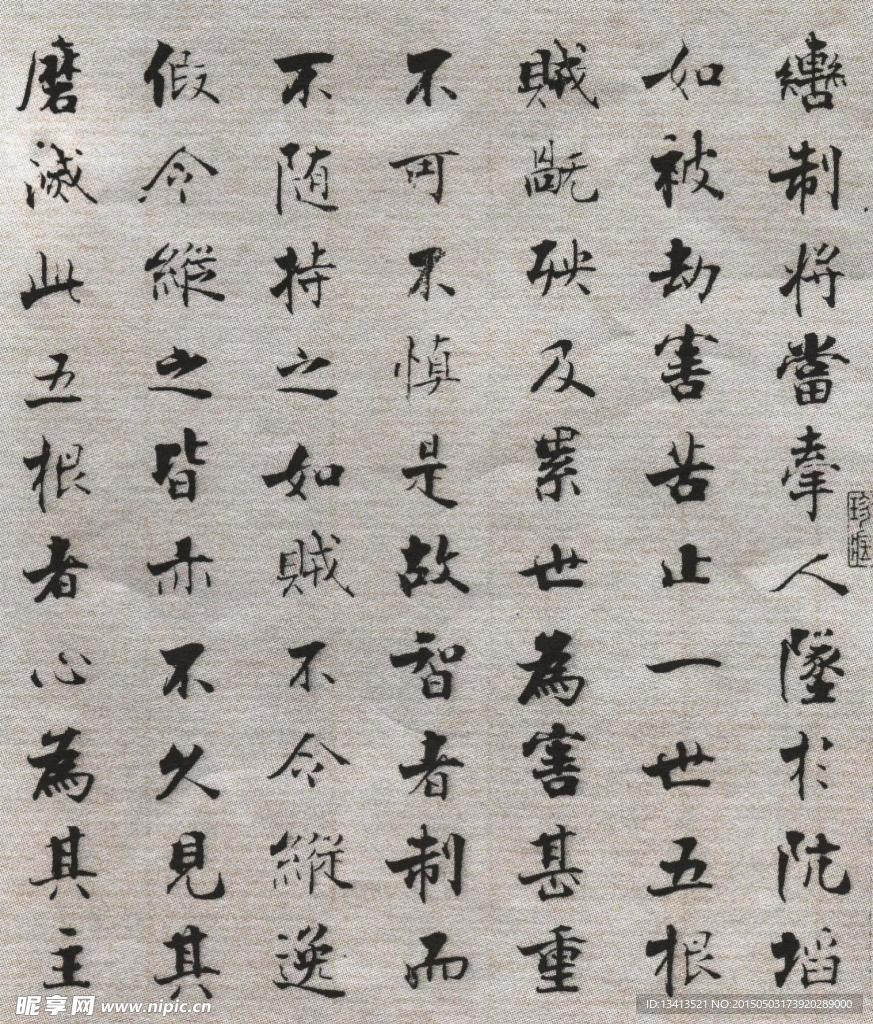 轡制將當牽人墜於阬埳
如被劫害苦止一世五根
賊翫殃及累世為害甚重
不可不慎是故智者制而
不随持之如賊不令縱逸
假令縱之皆亦不久見其
磨滅此五根者心為其主
昵享网 www.nipic.cn
ID:13413521 NO:20150503173920289000